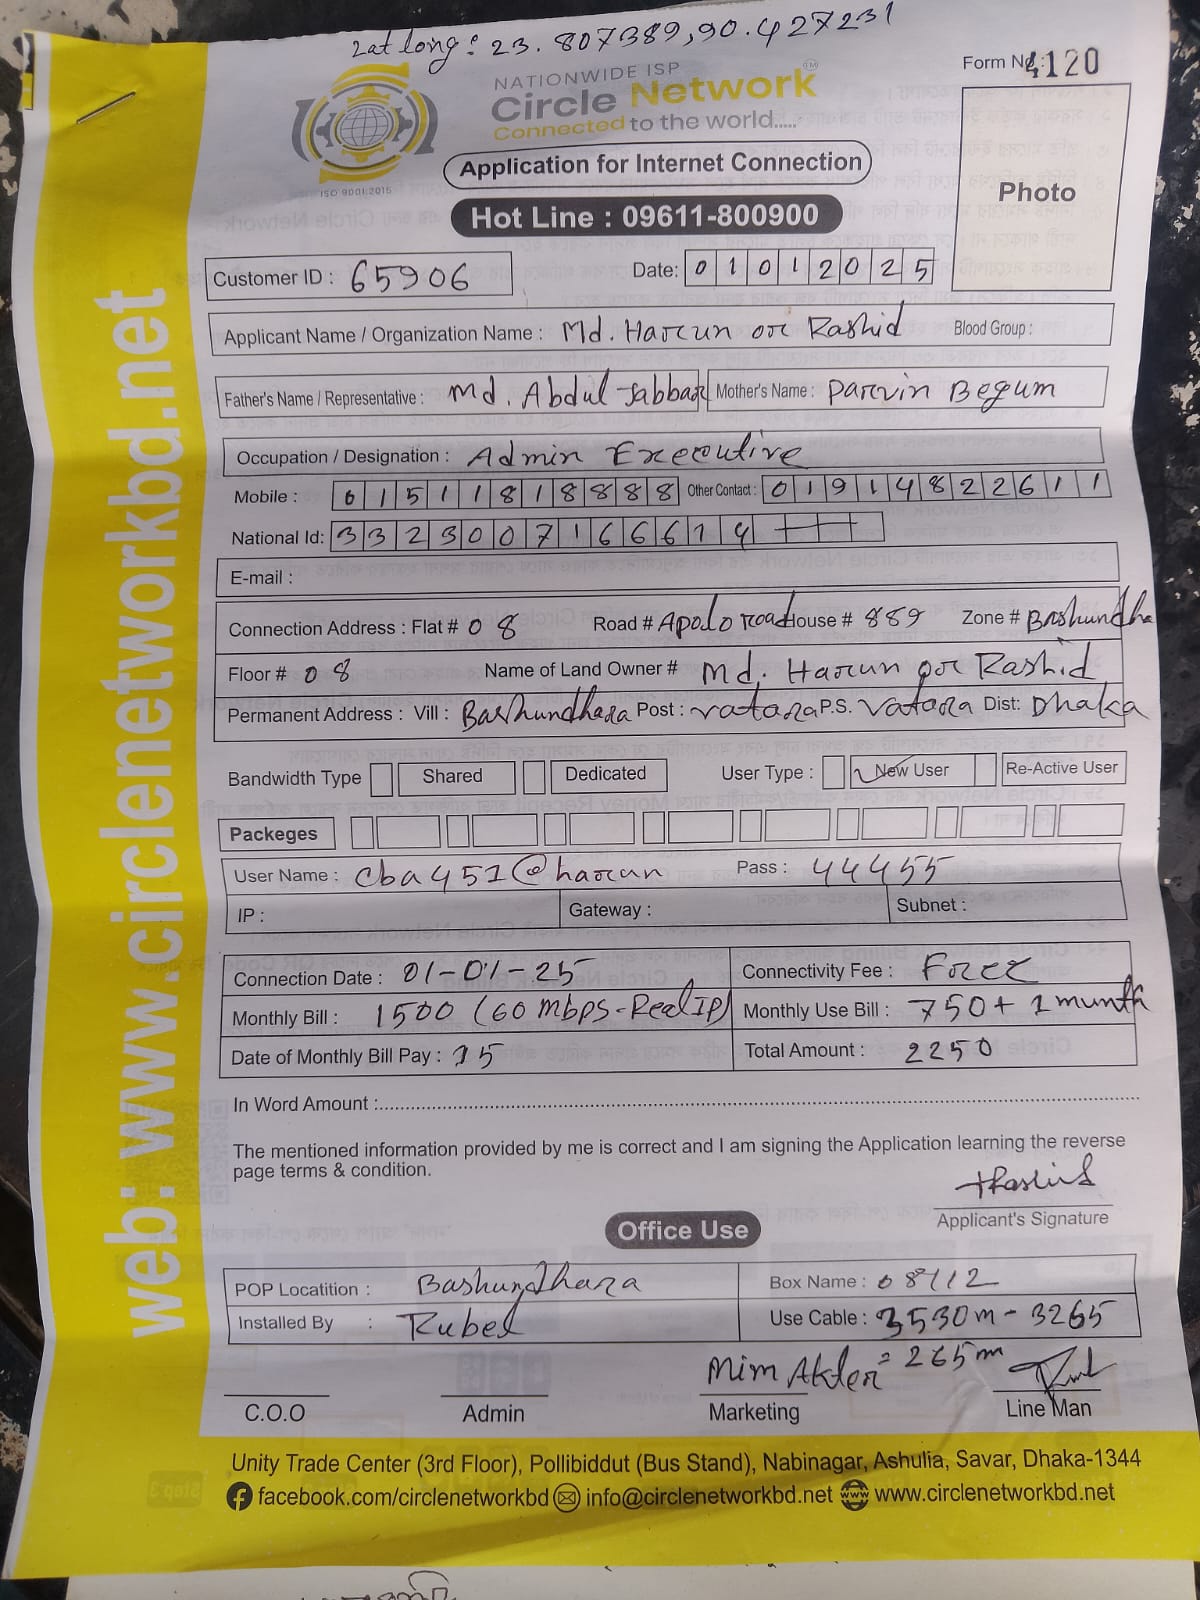 Lat long: 23.807389,90.427231
NATIONWIDE ISP
Form No.: 4120
Circle Network
Connected to the world.....
ISO 9001:2015
Application for Internet Connection
Photo
Hot Line : 09611-800900
Customer ID : 65906
Date: 01012025
Applicant Name / Organization Name : Md. Harun or Rashid Blood Group :
Father's Name / Representative : Md. Abdul Jabbar Mother's Name : Parvin Begum
Occupation / Designation : Admin Executive
Mobile : 01511818888 Other Contact : 01914822611
National Id: 3323007166614
E-mail :
Connection Address : Flat # 08 Road # Apolo road House # 889 Zone # Bashundha
Floor # 08 Name of Land Owner # Md. Harun or Rashid
Permanent Address : Vill : Bashundhara Post : vatara P.S. vatara Dist: Dhaka
Bandwidth Type Shared Dedicated User Type : New User Re-Active User
Packeges
User Name : cba451@harun Pass : 44455
IP : Gateway : Subnet :
Connection Date : 01-01-25 Connectivity Fee : Free
Monthly Bill : 1500 (60 mbps-Real IP) Monthly Use Bill : 750+ 1 munth
Date of Monthly Bill Pay : 15 Total Amount : 2250
In Word Amount :
The mentioned information provided by me is correct and I am signing the Application learning the reverse
page terms & condition.
Rashid
Applicant's Signature
Office Use
POP Locatition : Bashundhara Box Name :
Installed By : Rubel Use Cable : 3530m - 3265
Mim Akter = 265m
C.O.O Admin Marketing Line Man
Unity Trade Center (3rd Floor), Pollibiddut (Bus Stand), Nabinagar, Ashulia, Savar, Dhaka-1344
facebook.com/circlenetworkbd info@circlenetworkbd.net www.circlenetworkbd.net
web: www.circlenetworkbd.net